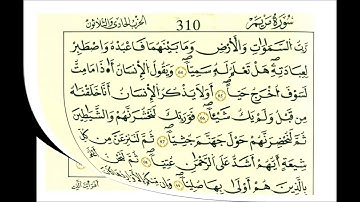 سُورَةُ مَرْيَمَ 310 الحزب الحادي والثلاثون
رَبُّ السَّمَٰوَٰتِ وَالْأَرْضِ وَمَا بَيْنَهُمَا فَاعْبُدْهُ وَاصْطَبِرْ
لِعِبَادَتِهِ هَلْ تَعْلَمُ لَهُ سَمِيًّا وَيَقُولُ الْإِنسَانُ أَءِذَا مَا مِتُّ
لَسَوْفَ أُخْرَجُ حَيًّا أَوَلَا يَذْكُرُ الْإِنسَانُ أَنَّا خَلَقْنَاهُ
مِن قَبْلُ وَلَمْ يَكُ شَيْئًا فَوَرَبِّكَ لَنَحْشُرَنَّهُمْ وَالشَّيَاطِينَ
ثُمَّ لَنُحْضِرَنَّهُمْ حَوْلَ جَهَنَّمَ جُثِيًّا ثُمَّ لَنَنزِعَنَّ مِن كُلِّ
شِيعَةٍ أَيُّهُمْ أَشَدُّ عَلَى الرَّحْمَٰنِ عُتِيًّا ثُمَّ لَنَحْنُ
بِالَّذِينَ هُمْ أَوْلَى بِهَا صُلِيًّا